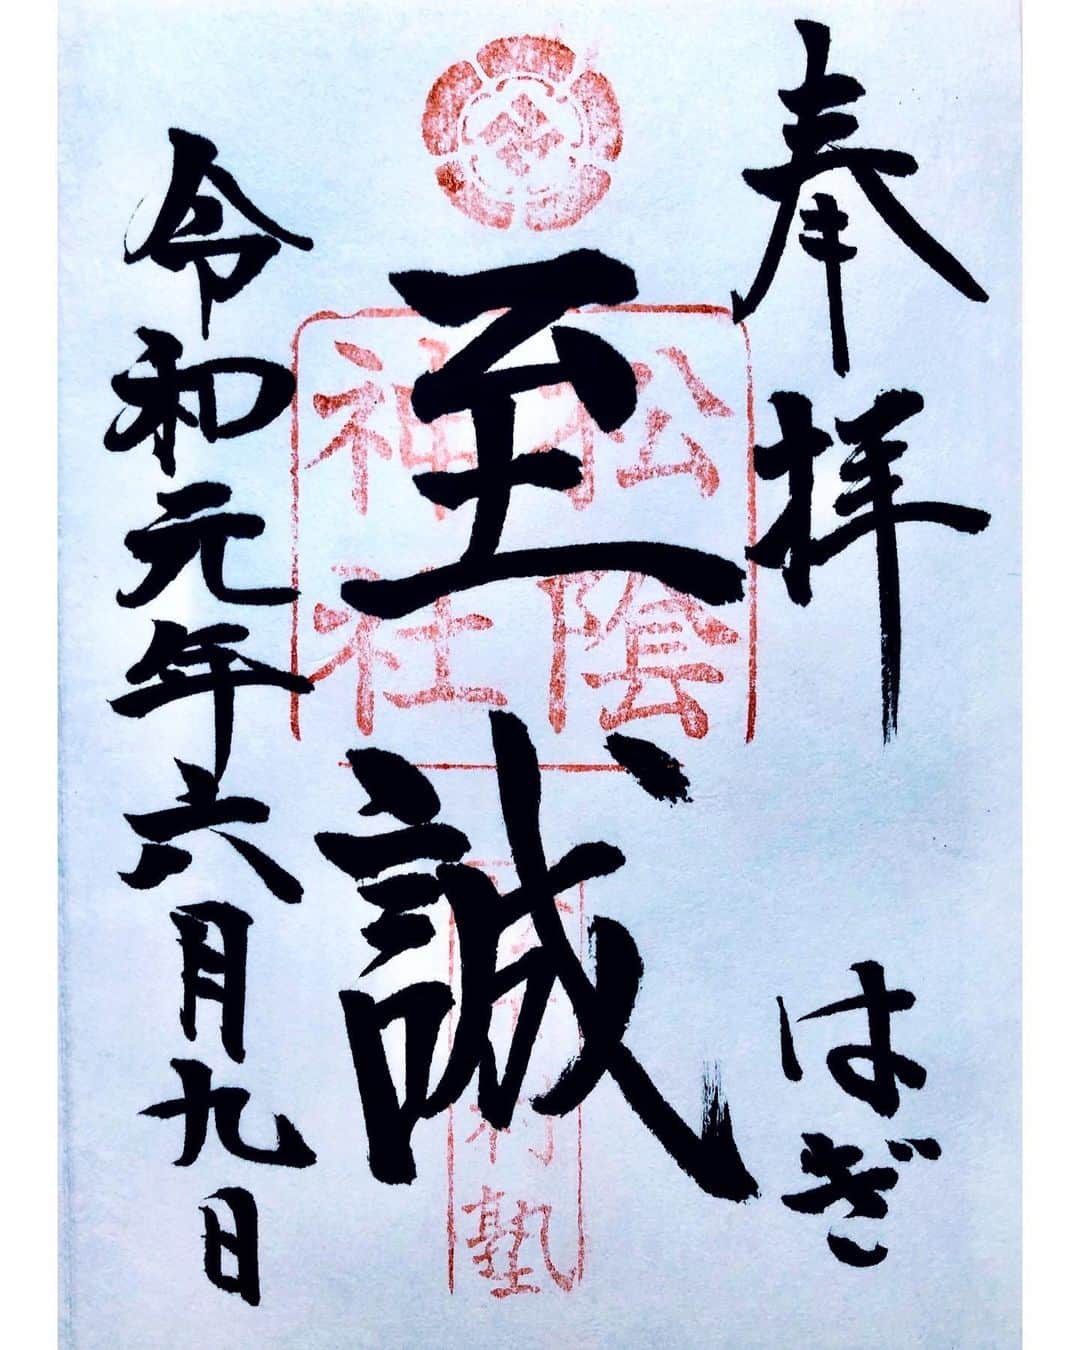 奉拝 はぎ
至誠
松陰
神社
松下村塾
令和元年六月九日